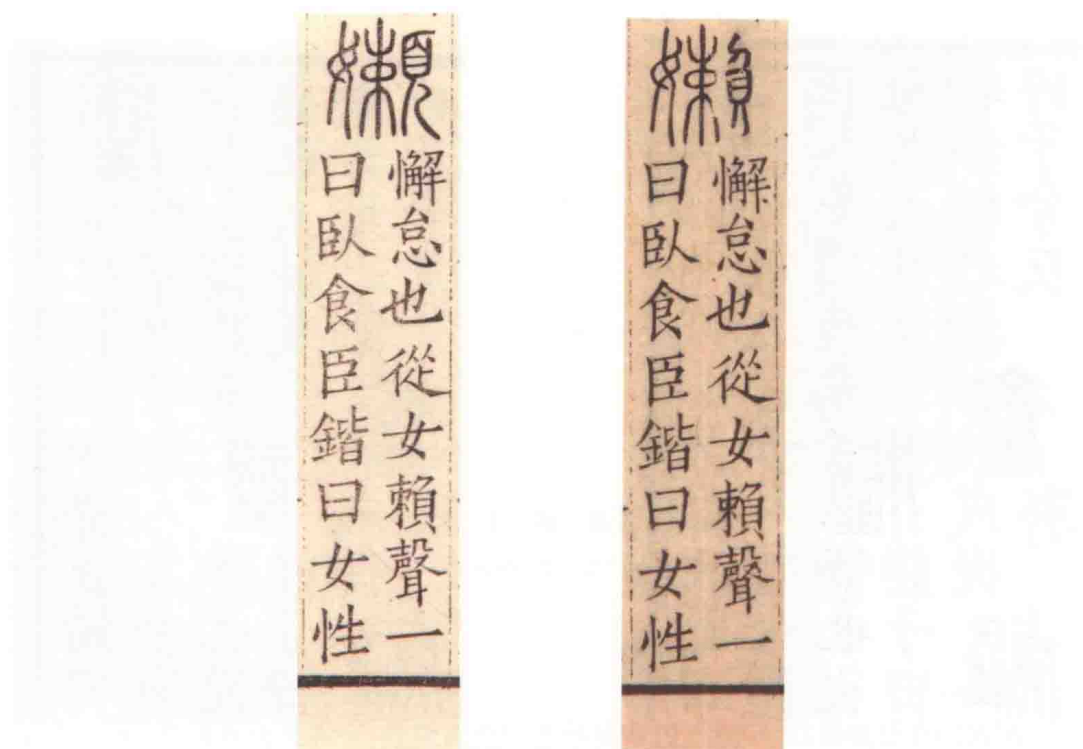 嬾
懈怠也從女賴聲一
曰臥食臣鍇曰女性
嬾
懈怠也從女賴聲一
曰臥食臣鍇曰女性